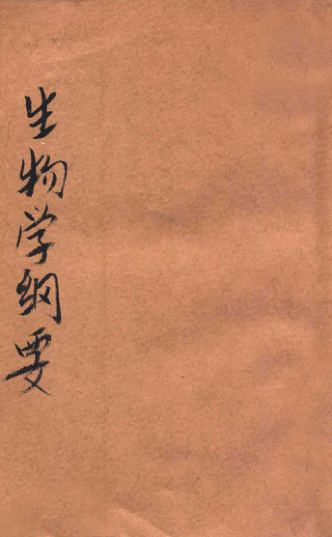 生物学纲要